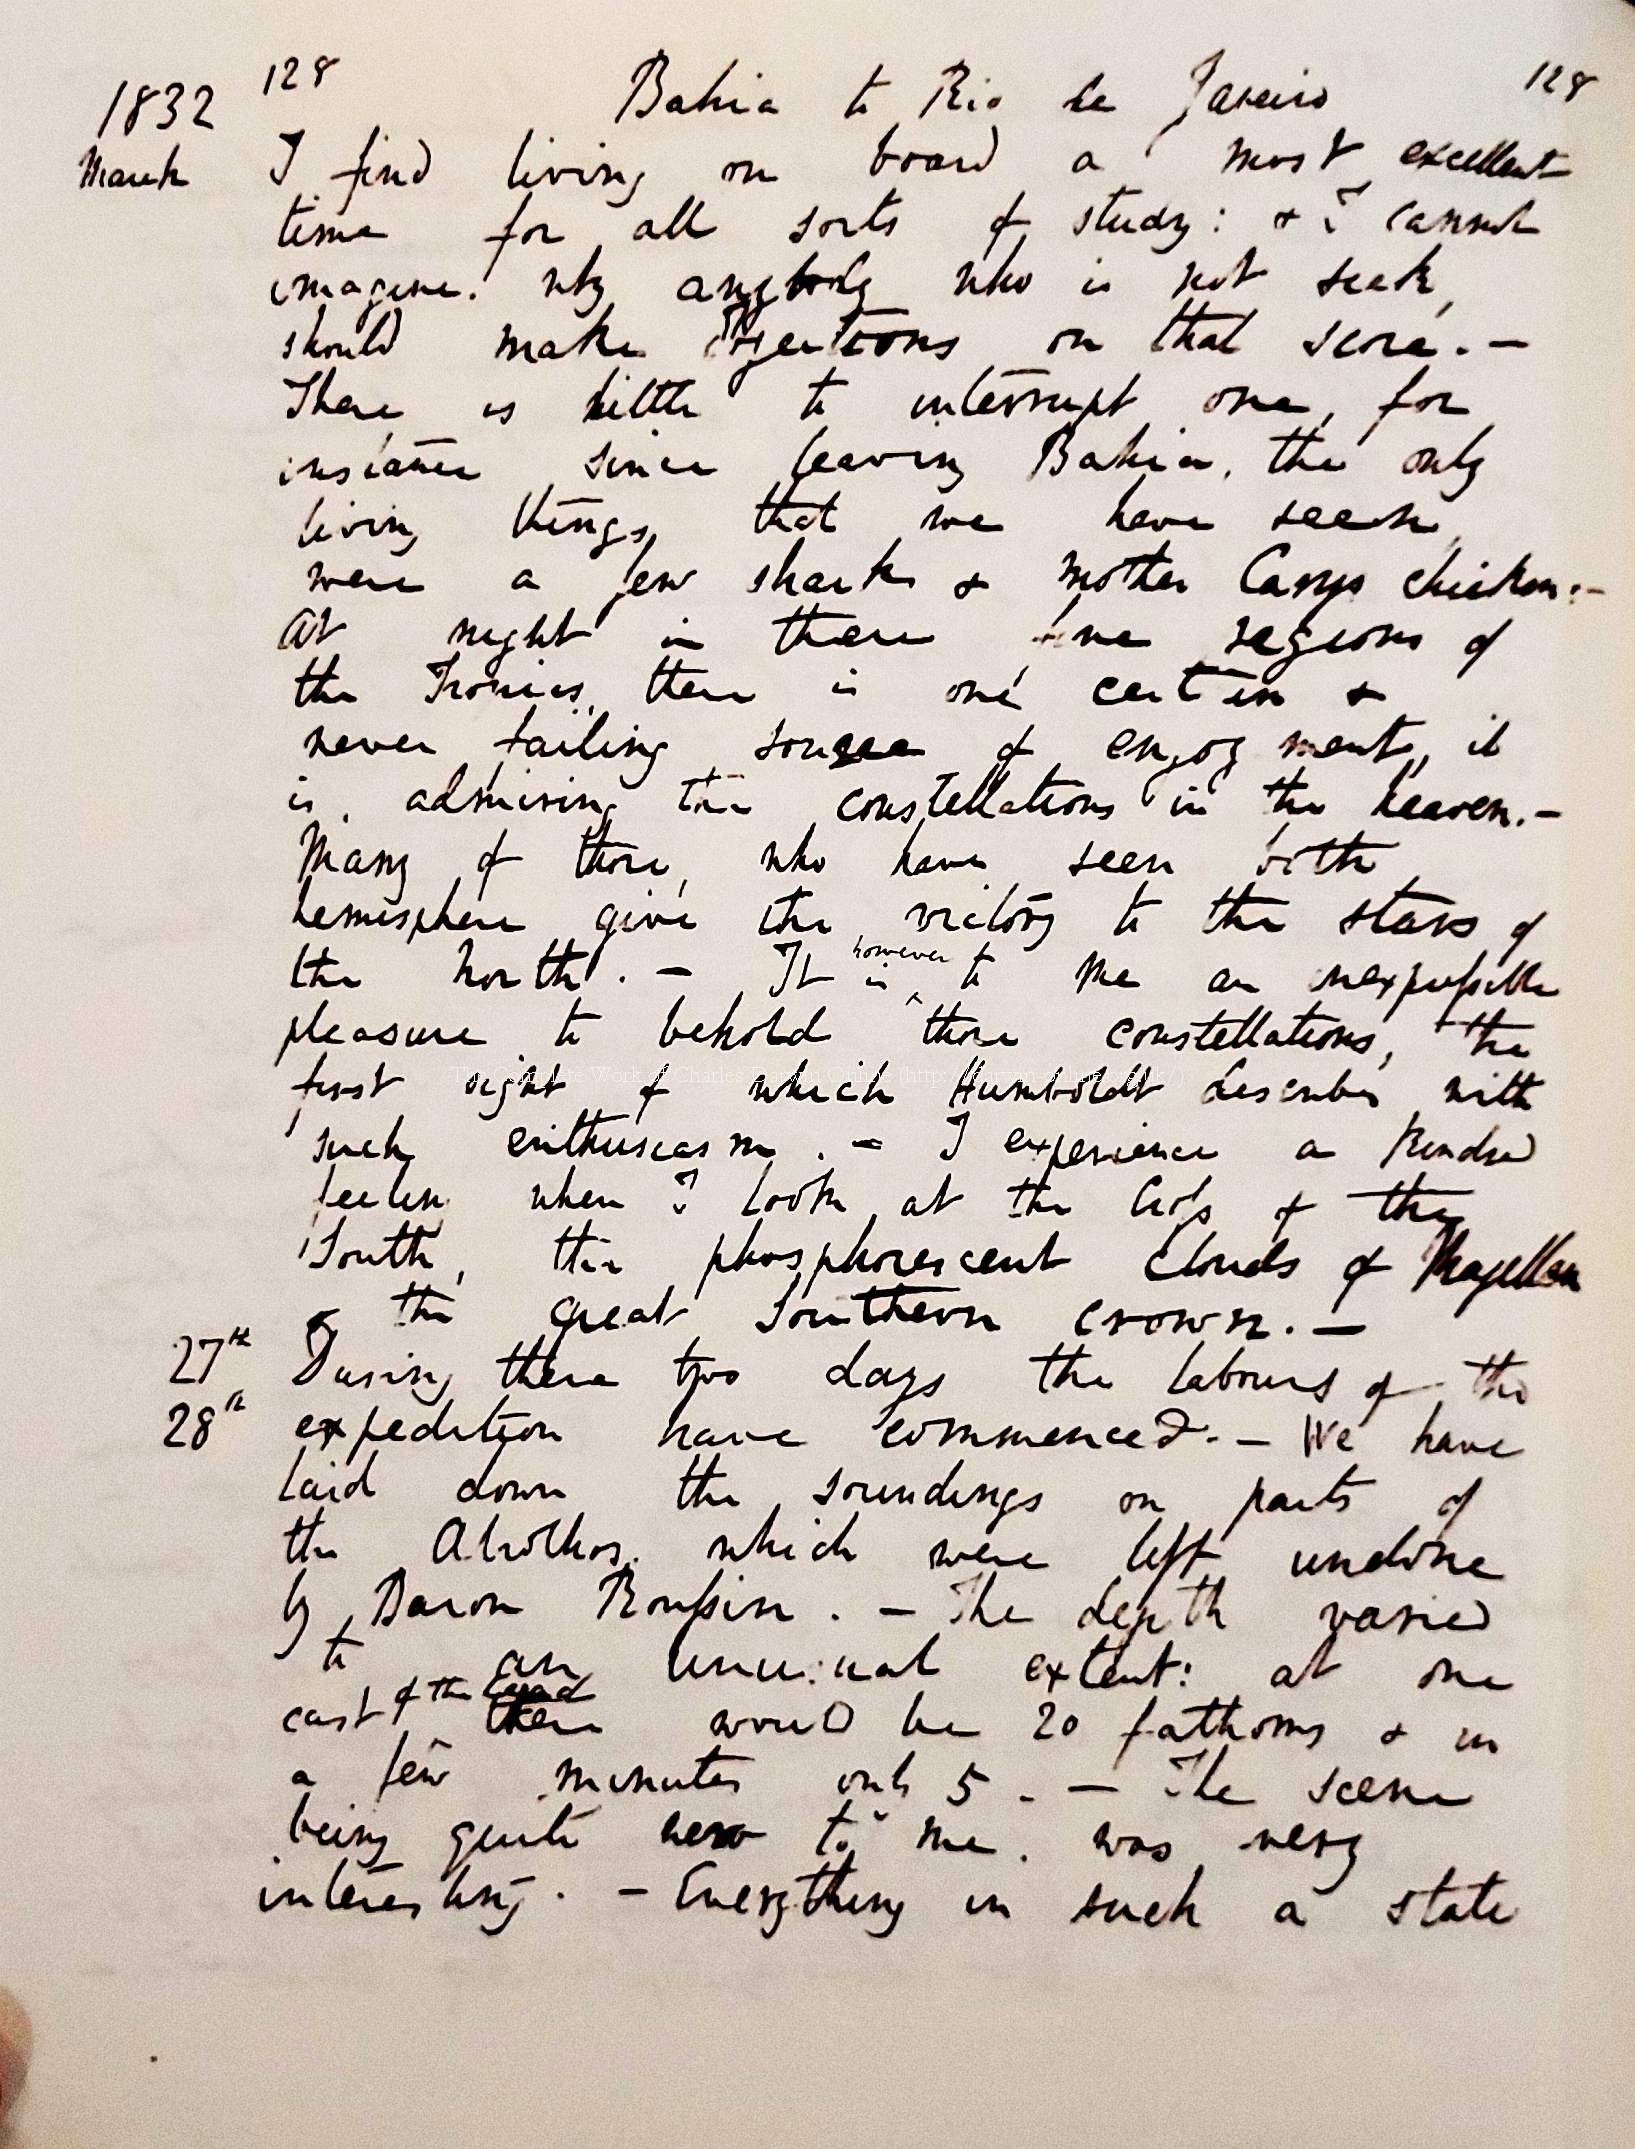 128 Bahia to Rio de Janeiro 128
1832
March
I find living on board a most excellent
time for all sorts of study; & I cannot
imagine. why anybody who is not sick
should make objections on that score. —
There is little to interrupt one, for
instance since leaving Bahia, the only
living things, that we have seen,
were a few sharks & Mother Carys chicken. —
At night in these fine regions of
the Tropics, there is one certain &
never failing source of enjoyment, it
is, admiring the constellations in the heaven. —
Many of those, who have seen both
hemisphere give the victory to the stars of
the North. — It is however to me an inexpressible
pleasure to behold those constellations, the
first sight of which Humboldt describes with
such enthusiasm. — I experience a kindred
feeling when I look at the Cross of the
South, the phosphorescent clouds of Magellan
& the great Southern crown. —
27th During these two days the labours of the
28th expedition have commenced. — We have
laid down the soundings on parts of
the Abrolhos, which were left undone
by Baron Roussin. — The depth varied
to an unusual extent: at one
cast of the lead there would be 20 fathoms & in
a few minutes only 5. — The scene
being quite new to me. was very
interesting. — Everything in such a state